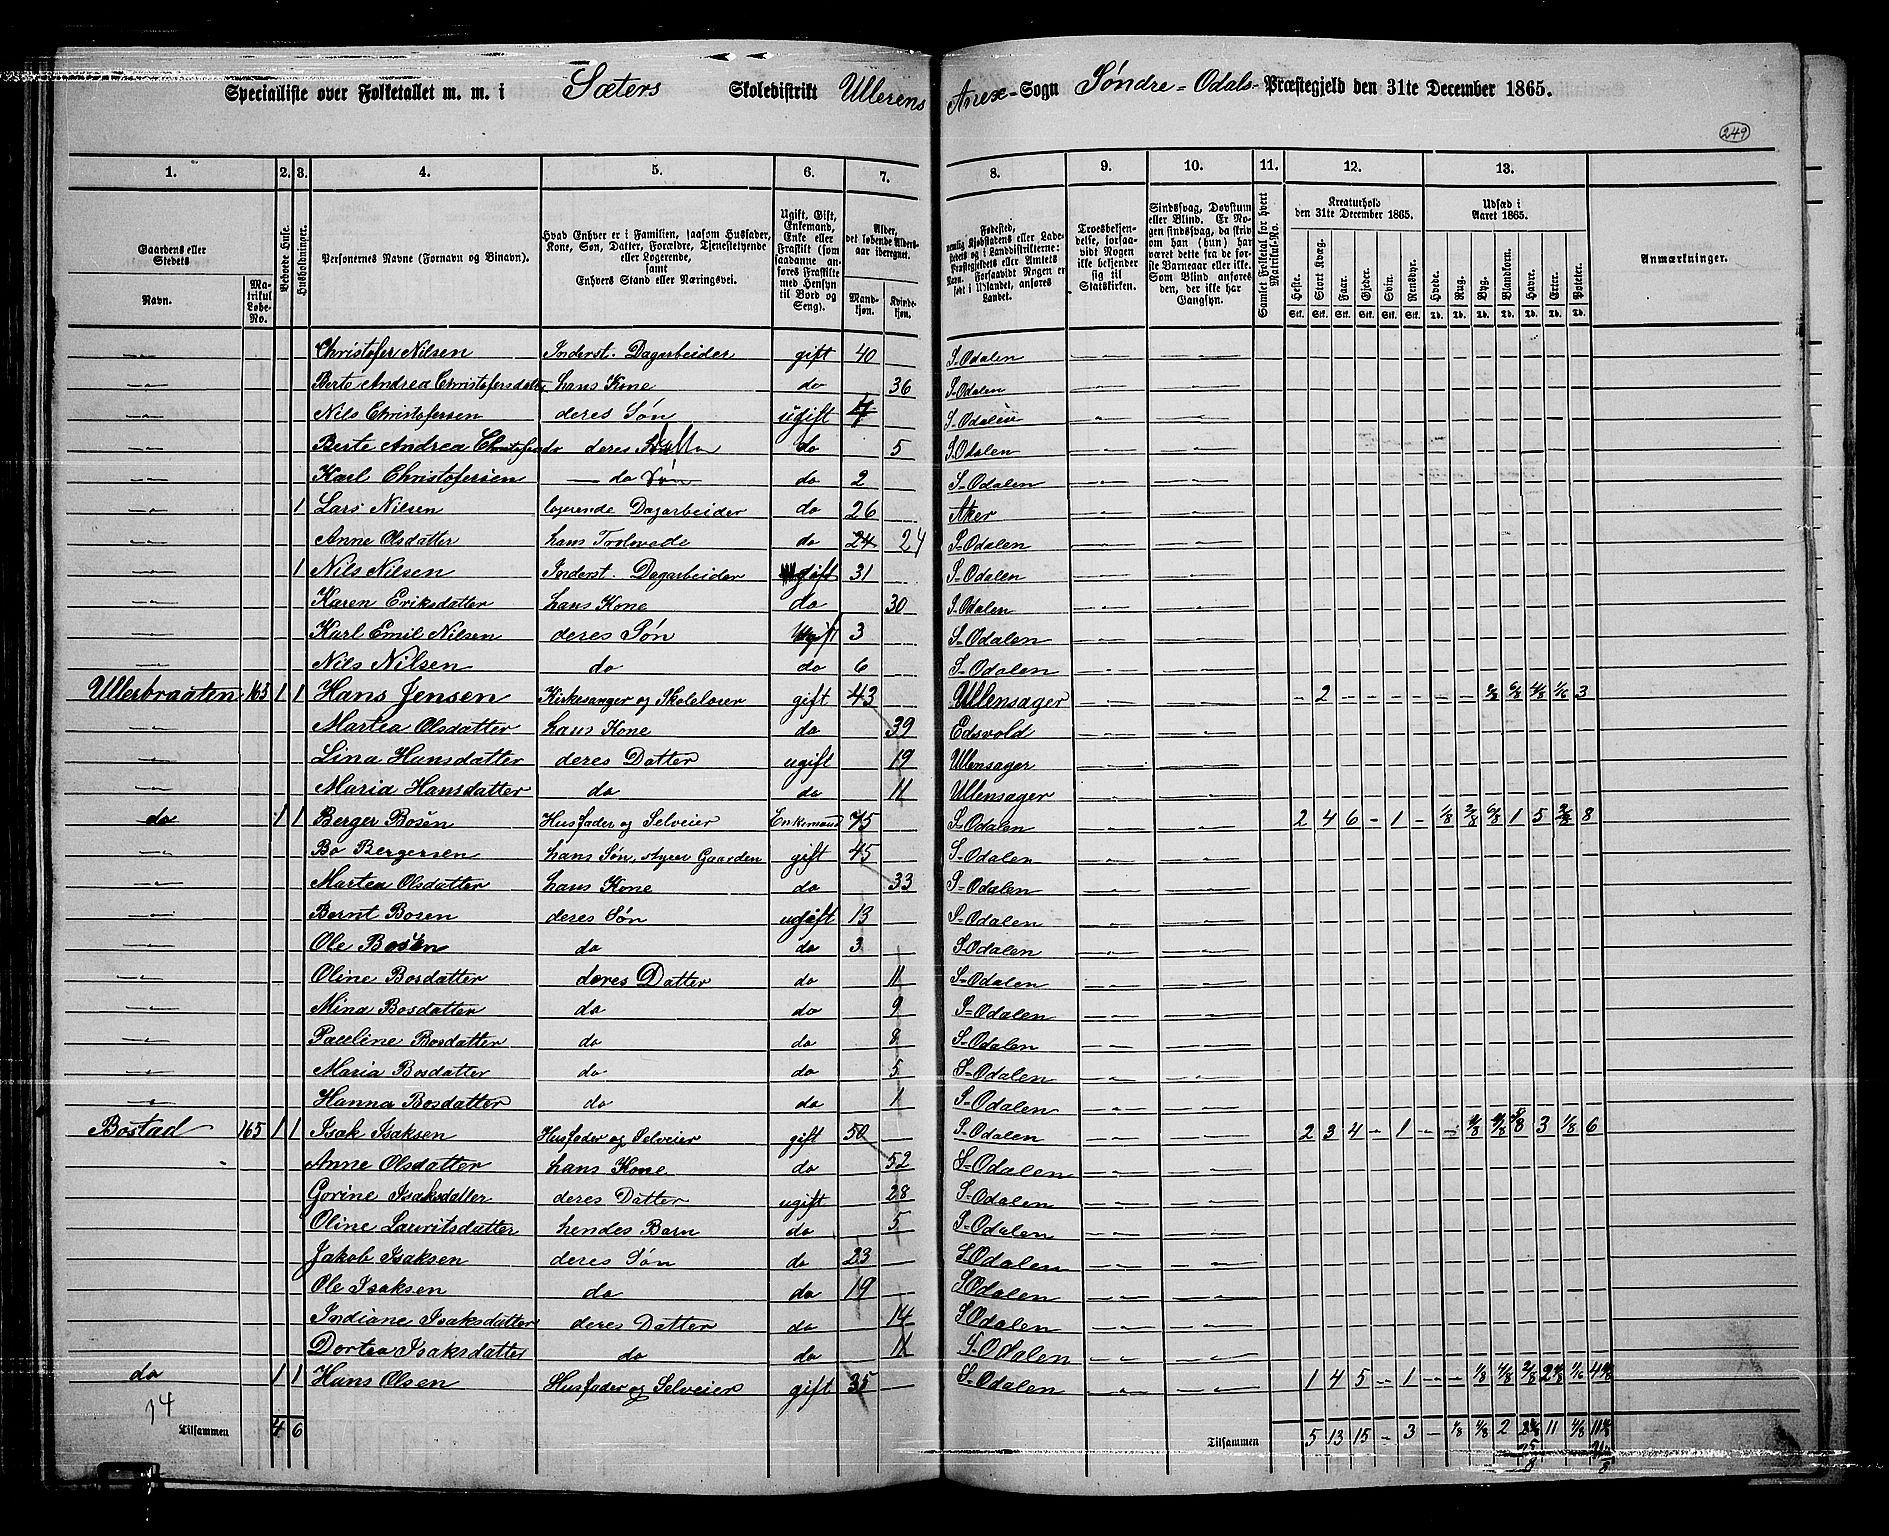 Specialliste over Folketallet m. m. i Sæters Skoledistrikt Ullerens Anex-Sogn Søndre-Odals Præstegjeld den 31te December 1865.
249
1. 2. 3. 4. 5. 6. 7. 8. 9. 10. 11. 12. 13.
Gaardens eller Stedets Navn. Matrikul Løbe-No. Beboede Huse. Husholdninger. Personernes Navne (Fornavn og Binavn). Hvad Enhver er i Familien, saasom Husfader, Kone, Søn, Datter, Forældre, Tjenestetyende eller Logerende, samt Enhvers Stand eller Næringsvei. Ugift, Gift, Enkemand, Enke eller Fraskilt (som saadanne anføres Fraskilte med Hensyn til Bord og Seng). Alder, det løbende Alders-aar iberegnet. Mandkjøn. Kvindekjøn. Fødested, Troesbekjendelse, forsaavidt Nogen ikke bekjender sig til Statskirken. Sindssvag, Døvstum eller Blind. Samlet Folketal for hvert Matrikul-No. Kreaturhold den 31te December 1865. Heste. Stort Kvæg. Faar. Gjeder. Svin. Rensdyr. Udsæd i Aaret 1865. Hvede. Rug. Byg. Blandkorn. Havre. Erter. Poteter. Anmærkninger.
Christofer Nilsen Inderst. Dagarbeider gift 40 S-Odalen
Berte Andrea Christofersdatter hans Kone do 36 S-Odalen
Nils Christofersen deres Søn ugift 7 S-Odalen
Berte Andrea Christofersdr deres Datter do 5 S.Odalen
Karl Christofersen do Søn do 2 S-Odalen
1 Lars Nilsen logerende Dagarbeider do 26 Aker
Anne Olsdatter hans Trolovede do 24 24 S-Odalen
1 Nils Nilsen Inderst. Dagarbeider gift 31 S-Odalen
Karen Eriksdatter hans Kone do 30 S-Odalen
Karl Emil Nilsen deres Søn Ugift 3 S-Odalen
Nils Nilsen do do 6 S-Odalen
Ullerbraaten 163 1 1 Hans Jensen Kirkesanger og Skolelærer gift 43 Ullensager - 2 - - - - - - 2/8 6/8 4/8 1/16 3
Martea Olsdatter hans Kone do 39 Edsvold
Lina Hansdatter deres Datter ugift 19 Ullensager
Maria Hansdatter do do 11 Ullensager
do 1 1 Berger Bosen Husfader og Selveier Enkemand 75 S-Odalen 2 4 6 - 1 - 1/8 2/8 6/8 1 5 2/8 8
Bo Bergersen hans Søn, styrer Gaarden gift 45 S-Odalen
Martea Olsdatter hans Kone do 33 S-Odalen
Bernt Bosen deres Søn ugift 13 S-Odalen
Ole Bosen do do 3 S.Odalen
Oline Bosdatter deres Datter do 11 S-Odalen
Mina Bosdatter do do 9 S-Odalen
Pauline Bosdatter do do 8 S-Odalen
Maria Bosdatter do do 5 S-Odalen
Hanna Bosdatter do do 1 S-Odalen
Bostad 165 1 1 Isak Isaksen Husfader og Selveier gift 50 S-Odalen 2 3 4 - 1 - 3 1/8 6
Anne Olsdatter hans Kone do 52 S-Odalen
Gorine Isaksdatter deres Datter ugift 28 S-Odalen
Oline Lauritsdatter hendes Barn do 5 S-Odalen
Jakob Isaksen deres Søn do 23 S.Odalen
Ole Isaksen do do 19 S.Odalen
Indiane Isaksdatter deres Datter do 14 S.Odalen
Dortea Isaksdatter do do 11 S-Odalen
do 1 1 Hans Olsen Husfader og Selveier gift 35 S-Odalen 1 4 5 - 1 - - 1/8 4/8 2/8 1/16
Tilsammen 4 6 Tilsammen 5 13 15 - 3 - 1/8 4/8 2 11 4/8